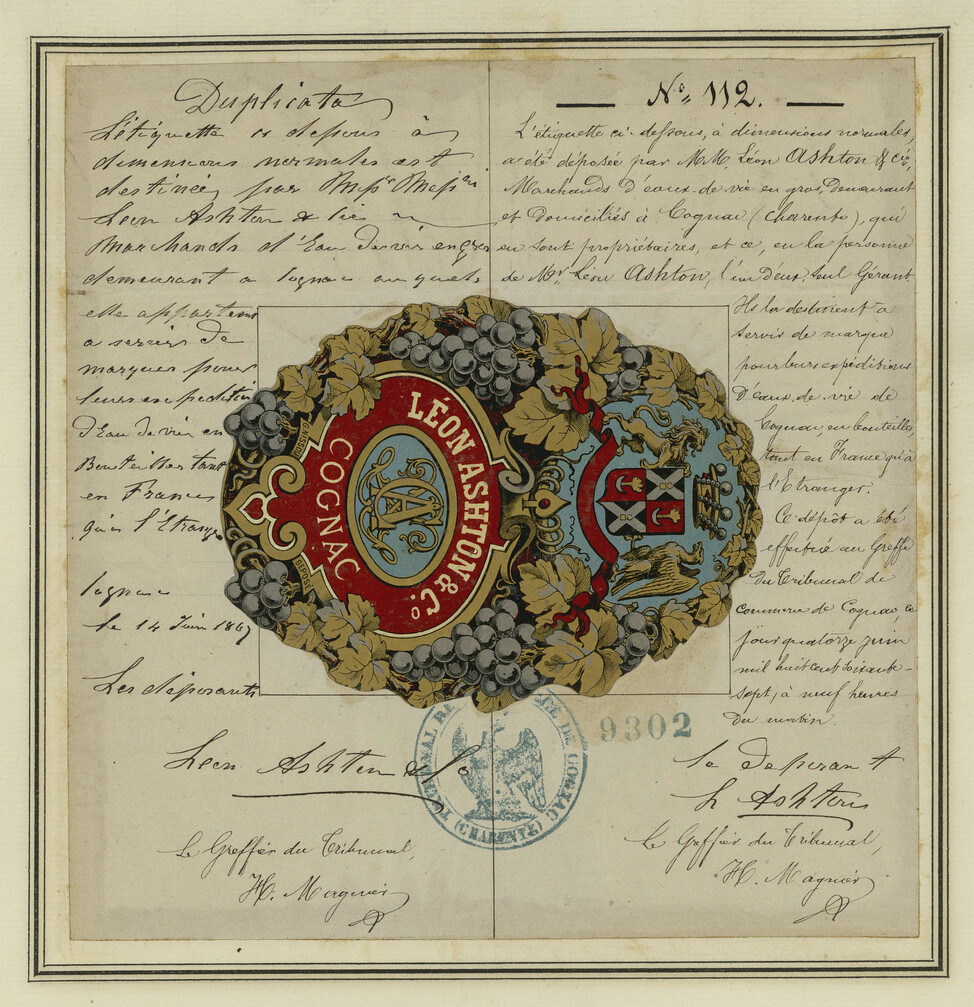 Duplicata
L'étiquette ci dessous à
dimensions normales est
destinée par
Léon Ashton & Cie
Marchands d'Eau de vie en gros
demeurant a Cognac auquels
elle appartient
a servir de
marques pour
leurs expedition
d'Eau de vie en
Bouteilles tant
en France
qu'a l'Etranger
Cognac
le 14 Juin 1867
Les déposants
Léon Ashton & Co
Le Greffier du Tribunal,
H. Magnier
N° 112.
L'étiquette ci-dessous, à dimensions normales,
a été déposée par M.M. Léon Ashton & Cie,
Marchands D'eaux-de-vie en gros, Demeurant
et Domiciliés à Cognac (Charente), qui
en sont propriétaires, et ce, en la personne
de Mr. Léon Ashton, l'un D'eux, Seul Gérant.
Ils la destinent à
servir de marque
pour leurs expéditions
D'eaux-de-vie de
Cognac, en bouteilles,
tant en France qu'à
l'Etranger.
Ce dépôt a été
effectué au Greffe
Du Tribunal de
Commerce de Cognac, ce
jour quatorze juin
mil huit cent soixante-
sept, à neuf heures
Du matin.
Le Déposant
L Ashton
Le Greffier du Tribunal,
H. Magnier
LÉON ASHTON & Co
COGNAC
DÉPOSÉ
9302
TRIBUNAL DE COGNAC
(CHARENTE)